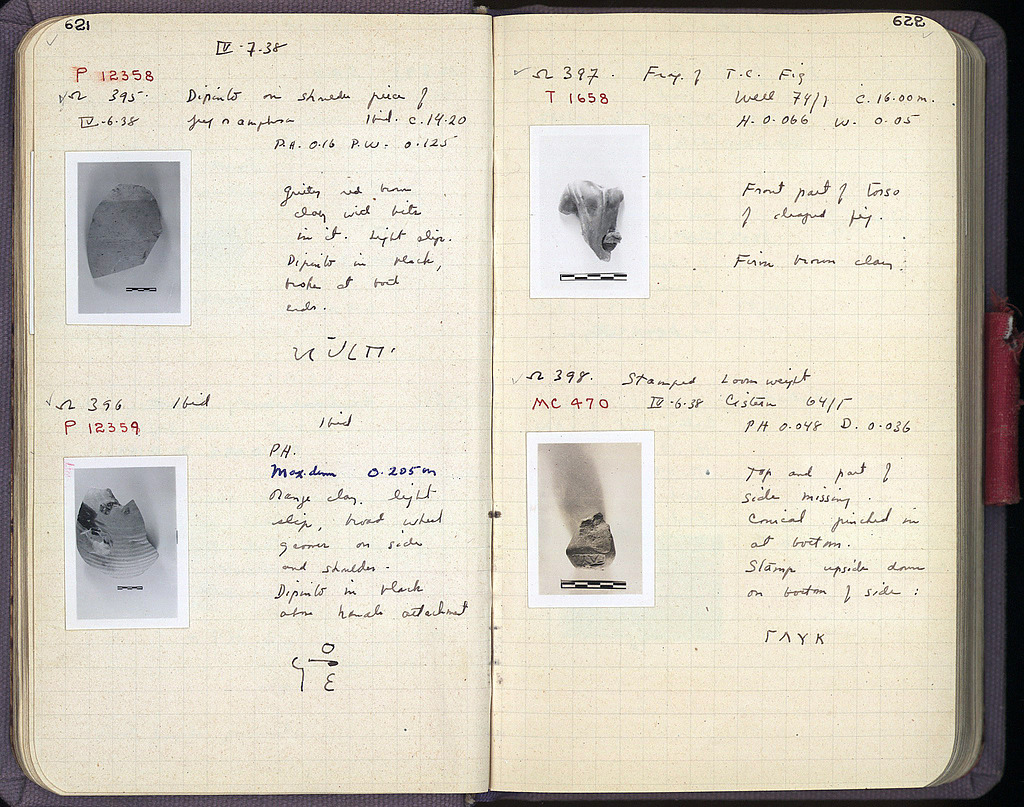 621
IV-7-38
P 12358
Ω 395. Dipinto on shoulder piece of
IV-6-38 frag of amphora Ibid. c. 14.20
P.H. 0.16 P.W. 0.125
gritty red brown
clay with bits
in it. Light slip.
Dipinto in black,
broken at both
ends.
Ω 396 Ibid
P 12359 Ibid
PH.
Max. diam 0.205 m
Orange clay. light
slip, broad wheel
grooves on side
and shoulder.
Dipinto in black
above handle attachment
Ο
Ε
622
Ω 397. Frag. of T.C. Fig
T 1658 Well 74/ C. 16.00 m.
H. 0.066 W. 0.05
Front part of torso
of draped fig.
Firm brown clay.
Ω 398. Stamped Loom weight
MC 470 IV-6-38 Cistern 64/Γ
PH 0.048 D. 0.036
Top and part of
side missing.
Conical pinched in
at bottom.
Stamp upside down
on bottom of side:
ΓΛΥΚ